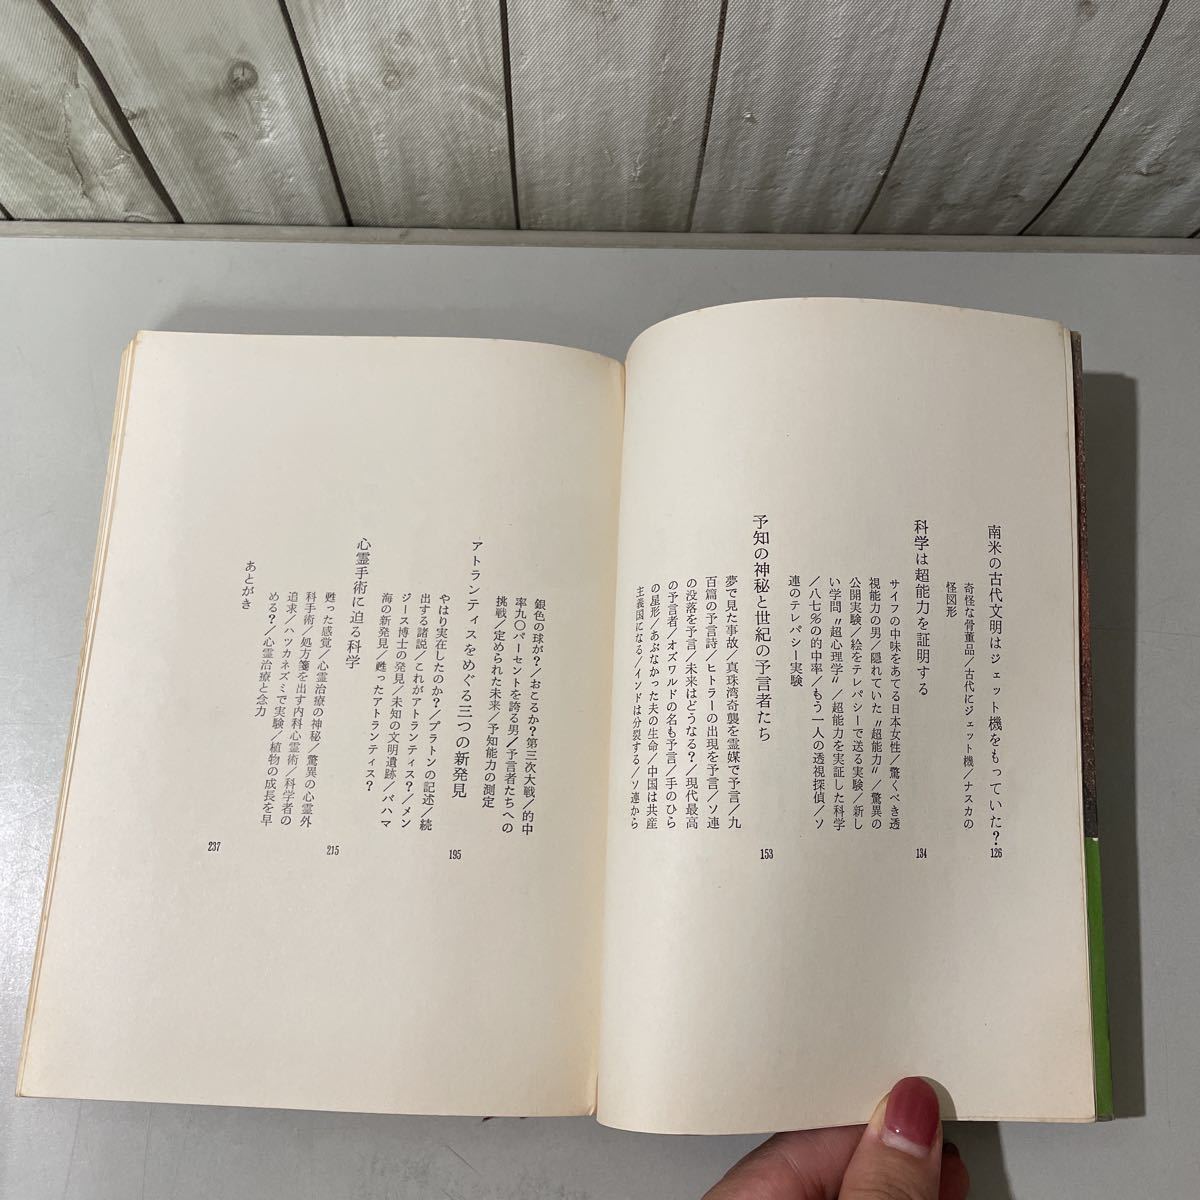 南米の古代文明はジェット機をもっていた？
126
奇怪な骨董品／古代にジェット機／ナスカの
怪図形
科学は超能力を証明する
134
サイフの中味をあてる日本女性／驚くべき透
視能力の男／隠れていた〝超能力〟／驚異の
公開実験／絵をテレパシーで送る実験／新し
い学問〝超心理学〟／超能力を実証した科学
／八七％の的中率／もう一人の透視探偵／ソ
連のテレパシー実験
予知の神秘と世紀の予言者たち
153
夢で見た事故／真珠湾奇襲を霊媒で予言／九
百篇の予言詩／ヒトラーの出現を予言／ソ連
の没落を予言／未来はどうなる？／現代最高
の予言者／オズワルドの名も予言／手のひら
の星形／あぶなかった夫の生命／中国は共産
主義国になる／インドは分裂する／ソ連から
銀色の球が？／おこるか？第三次大戦／的中
率九〇パーセントを誇る男／予言者たちへの
挑戦／定められた未来／予知能力の測定
アトランティスをめぐる三つの新発見
195
やはり実在したのか？／プラトンの記述／続
出する諸説／これがアトランティス？／メン
ジース博士の発見／未知の文明遺跡／バハマ
海の新発見／甦ったアトランティス？
心霊手術に迫る科学
215
甦った感覚／心霊治療の神秘／驚異の心霊外
科手術／処方箋を出す内科心霊術／科学者の
追求／ハツカネズミで実験／植物の成長を早
める？／心霊治療と念力
あとがき
237